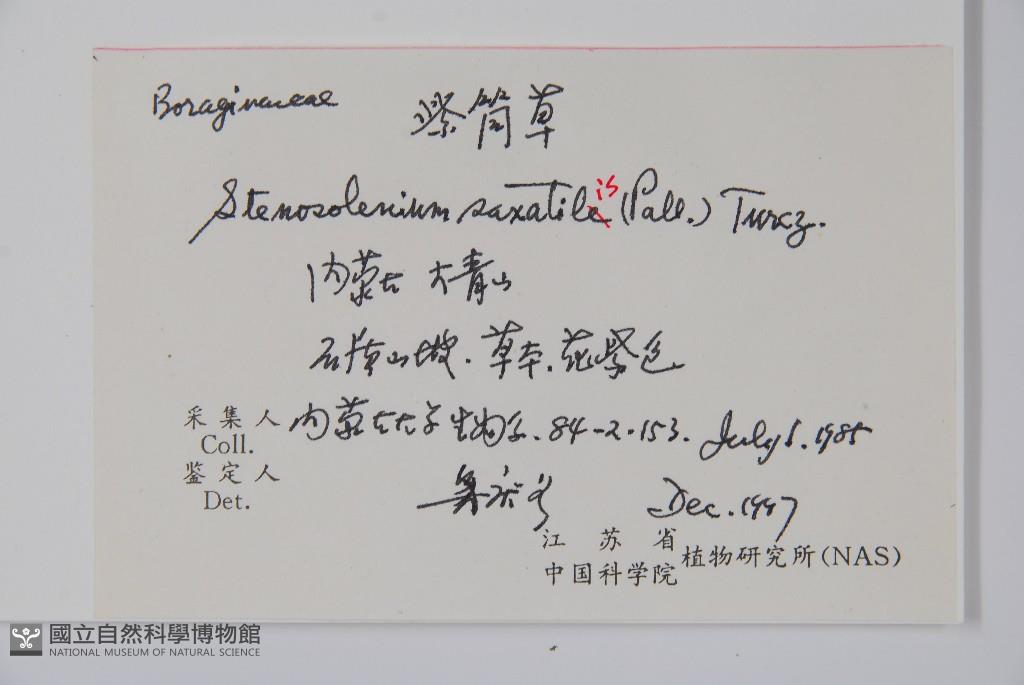 Boraginaceae 紫筒草
Stenosolenium saxatile is (Pall.) Turcz.
内蒙古 大青山
石质山坡. 草本. 花紫色
采集人 内蒙古大学生物系. 84-2-153. July 1985
Coll.
鉴定人
Det. Dec. 1997
江苏省
中国科学院 植物研究所(NAS)
國立自然科學博物館
NATIONAL MUSEUM OF NATURAL SCIENCE